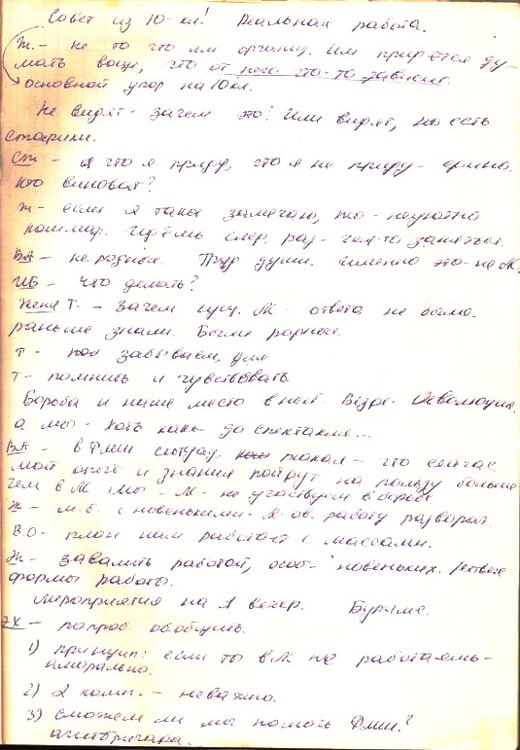 Совет из 10-кл! Реальная работа.
Ж. - не то что им органу. Им придётся ду-
мать вощи, что от него что-то зависит.
основной упор на 10 кл.
Не видят - зачем это? Или видят, но есть
старики.
СТ - А что я приду, что я не приду - едино.
Кто виноват?
Ж - если я такое замечаю, то - неуютно
кошмар. Идёмь след. раз - чем-то заняться.
ВА - не родное. Труд души. именно это - не М.
ИБ - Что делать?
Женя Т. - Зачем М - ответа не было.
раньше знали. Были родные.
Т - забываем, для
Т - помнить и чувствовать
Борьба и наше место в ней. Революция.
а мы - хоть как до спектакля...
ВА - в ФМШ ситуац такая - что сейчас
мой опыт и знания пойдут на пользу больше
чем в М. Мы - М - не участвуем в борьбе
Ж - м.б. с новенькими М-ов. работу развора.
В.О - план нам работать с массами.
Ж - завалить работой, особ новеньких.
формы работы.
мероприятия на 1 вечер. Буриме.
ЭК - попроб. обобщить.
1) принцип: если ты в М не работаешь -
аморально.
2) 2 комн. - неважно.
3) сможем ли мы помочь ФМШ?
агитбригада.